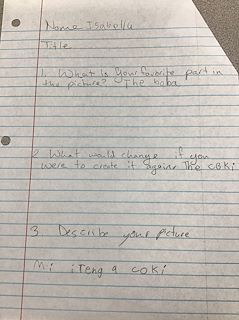 Name Isabella
Title
1. What is your favorite part in
the picture? The boba
2 What would change if you
were to create it again? The coki
3 Describe your picture
Mi iTeng a coki